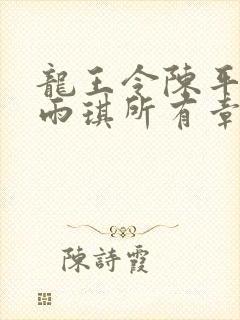 龍王令陳平
雨琪所有章
陳詩霞